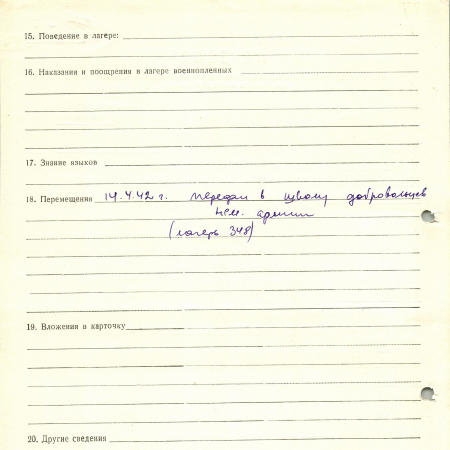 15. Поведение в лагере:
16. Наказания и поощрения в лагере военнопленных
17. Знание языков
18. Перемещения 14.4.42 г. передан в школу добровольцев
нем. армии
(лагерь 348)
19. Вложения в карточку
20. Другие сведения